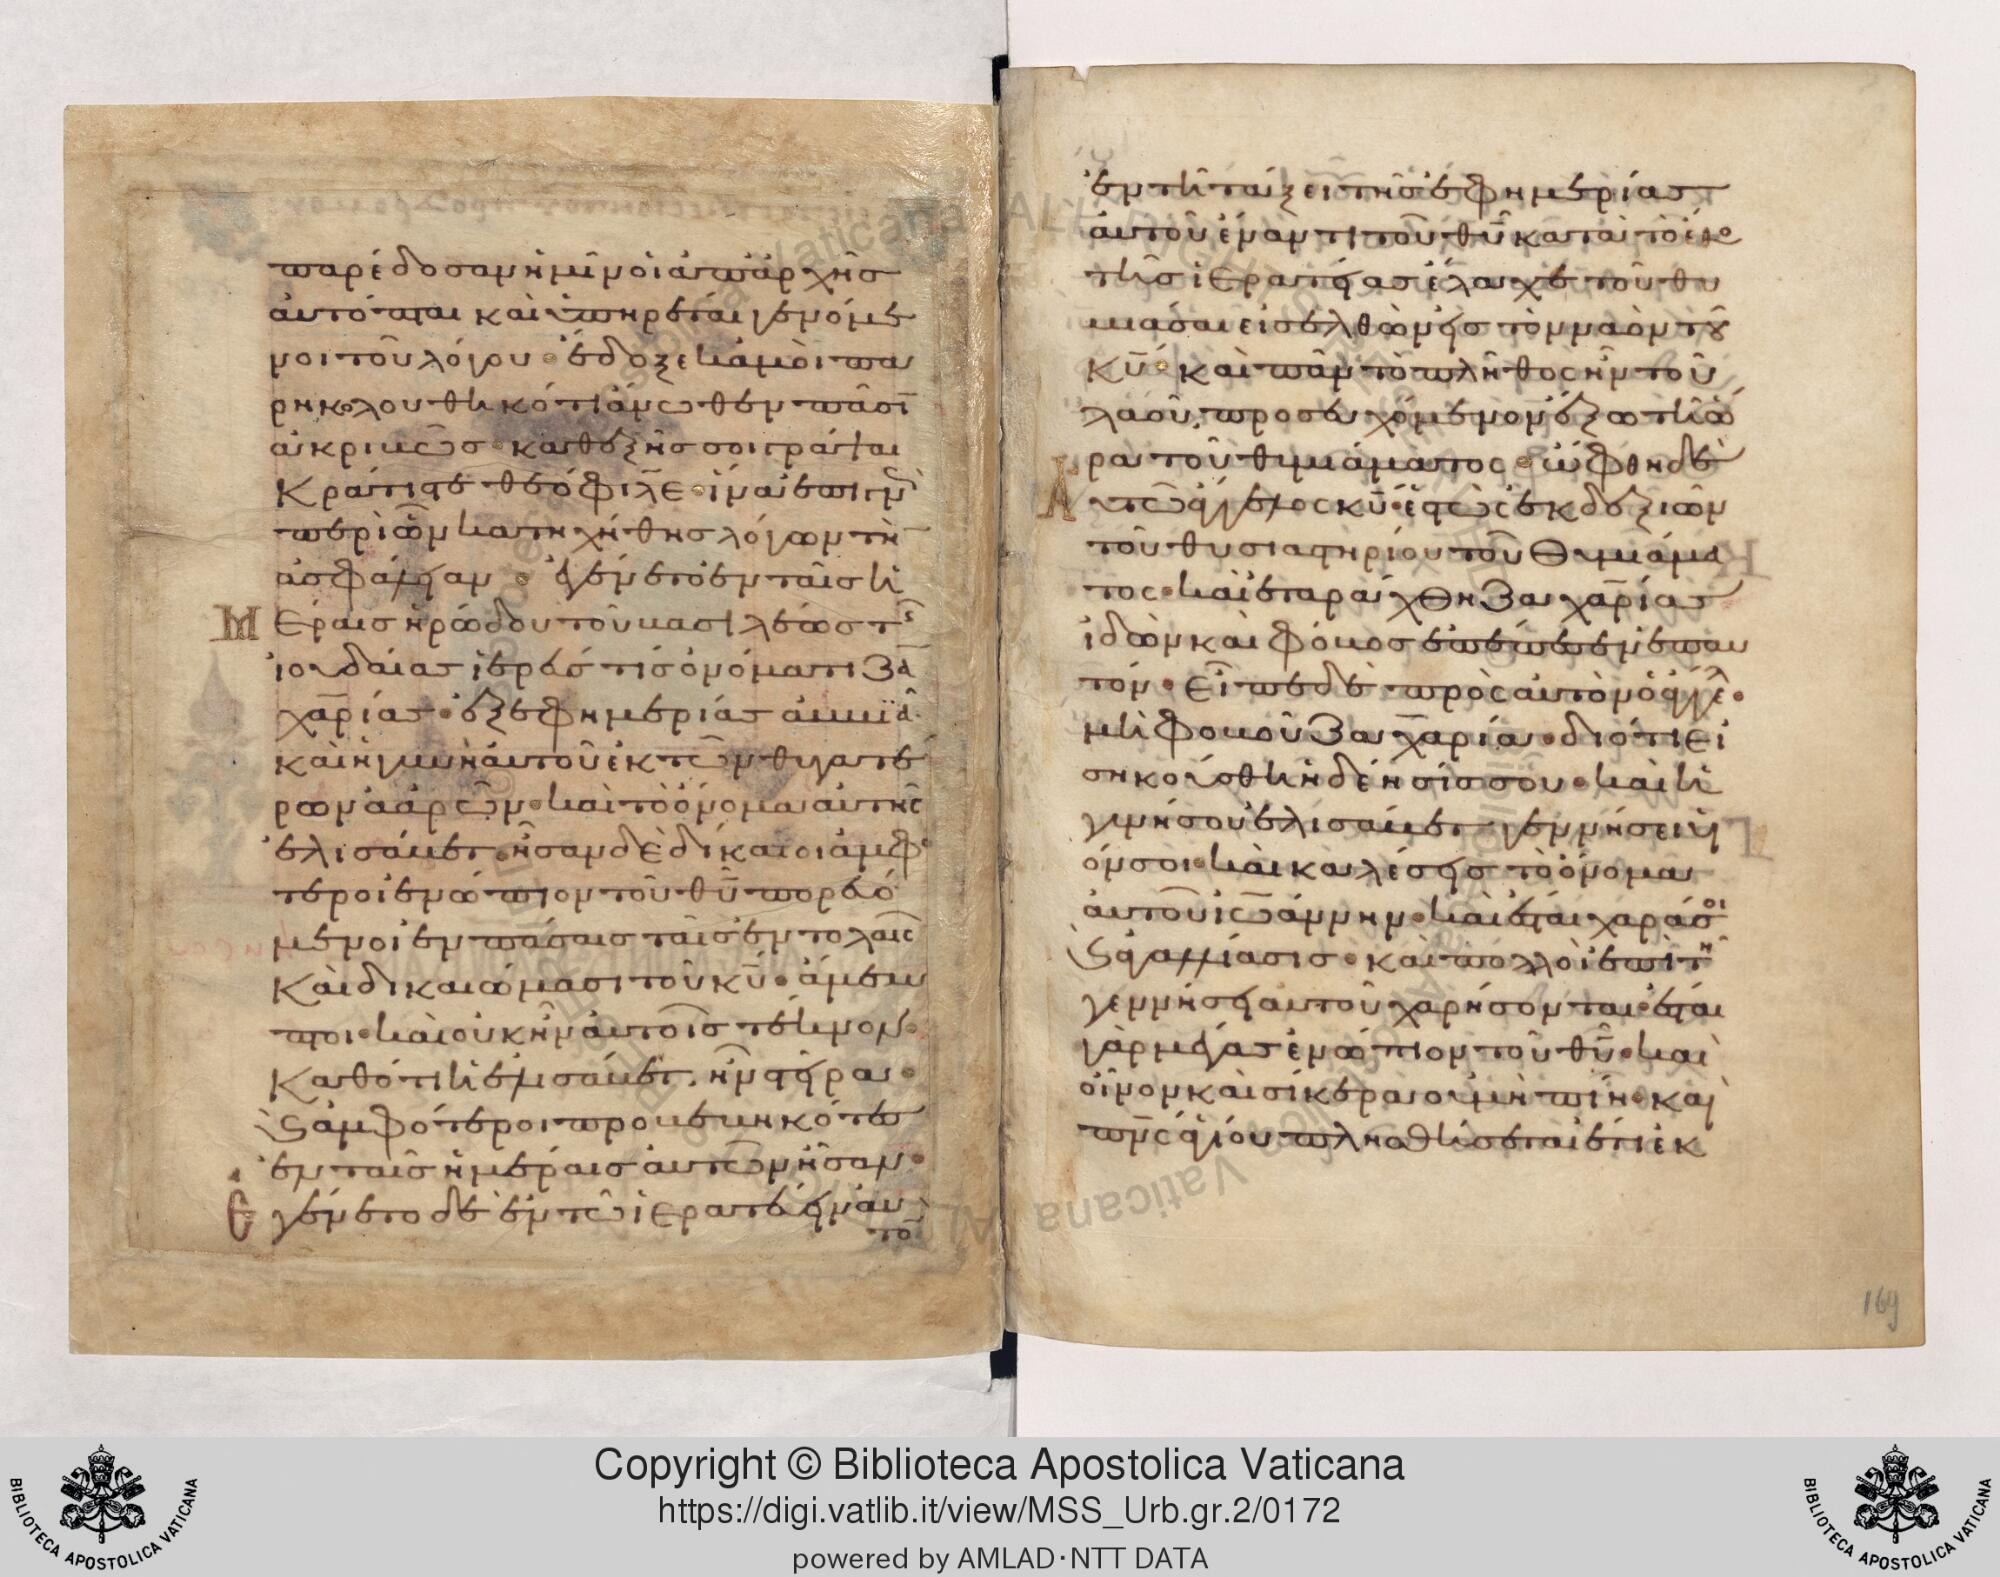 παρέδοσαν ἡμῖν οἱ ἀπ' ἀρχῆς
αὐτόπται καὶ ὑπηρέται γενόμε
νοι τοῦ λόγου· ἔδοξε κἀμοὶ πα
ρηκολουθηκότι ἄνωθεν πᾶσι
ἀκριβῶς· καθεξῆς σοι γράψαι
κράτιστε θεόφιλε· ἵνα ἐπιγν
περὶ ὧν κατηχήθης λόγων τὴ
ἀσφάλειαν· ἐγένετο ἐν ταῖς ἡ
μέραις ἡρώδου τοῦ βασιλέως τ
ἰουδαίας ἱερεύς τις ὀνόματι ζα
χαρίας· ἐξ ἐφημερίας ἀβιϊά·
καὶ ἡ γυνὴ αὐτοῦ ἐκ τῶν θυγατέ
ρων ἀαρών· καὶ τὸ ὄνομα αὐτῆς
ἐλισάβετ· ἦσαν δὲ δίκαιοι ἀμφο
τεροι ἐνώπιον τοῦ θυ πορευό
μενοι ἐν πάσαις ταῖς ἐντολαῖς
καὶ δικαιώμασι τοῦ κυ· ἄμεμ
πτοι· καὶ οὐκ ἦν αὐτοῖς τέκνον·
καθότι ἡ ἐλισάβετ, ἦν στεῖρα·
καὶ ἀμφότεροι προβεβηκότε
ἐν ταῖς ἡμέραις αὐτῶν ἦσαν·
ἐγένετο δὲ ἐν τῶ ἱερατεύειν αὐ
τὸ
ἐν τῆ τάξει τῆς ἐφημερίας
αὐτοῦ ἐναντι τοῦ θυ κατὰ τὸ ἔθο
τῆς ἱερατείας ἔλαχε τοῦ θυ
μιάσαι εἰσελθὼν εἰς τὸν ναὸν τοῦ
κυ· καὶ πᾶν τὸ πλῆθος ἦν τοῦ
λαοῦ, προσευχόμενον ἔξω τῆ ὥ
ρα τοῦ θυμιάματος· ὤφθη δὲ
αὐτῶ ἄγγελος κυ· ἑστὼς ἐκ δεξιῶν
τοῦ θυσιαστηρίου τοῦ θυμιάμα
τος· καὶ ἐταράχθη ζαχαρίας
ἰδὼν καὶ φόβος ἐπέπεσεν ἐπ' αυ
τόν· εἶπε δὲ πρὸς αὐτὸν ὁ ἄγγελ·
μὴ φοβοῦ ζαχαρία· διότι εἰ
σηκούσθη ἡ δέησίς σου· καὶ ἡ
γυνή σου ἐλισάβετ γεννήσει υἱ
όν σοι· καὶ καλέσεις τὸ ὄνομα
αὐτοῦ ἰωάννην· καὶ ἔσται χαρά σοι
καὶ ἀγαλλίασις· καὶ πολλοὶ ἐπὶ τῆ
γεννήσει αὐτοῦ χαρήσονται· ἔσται
γὰρ μέγας ἐνώπιον τοῦ θυ· καὶ
οἶνον καὶ σίκερα οὐ μὴ πίη· καὶ
πνς ἁγίου πλησθήσεται ἔτι ἐκ
169
Copyright © Biblioteca Apostolica Vaticana
https://digi.vatlib.it/view/MSS_Urb.gr.2/0172
powered by AMLAD·NTT DATA
BIBLIOTECA APOSTOLICA VATICANA
BIBLIOTECA APOSTOLICA VATICANA